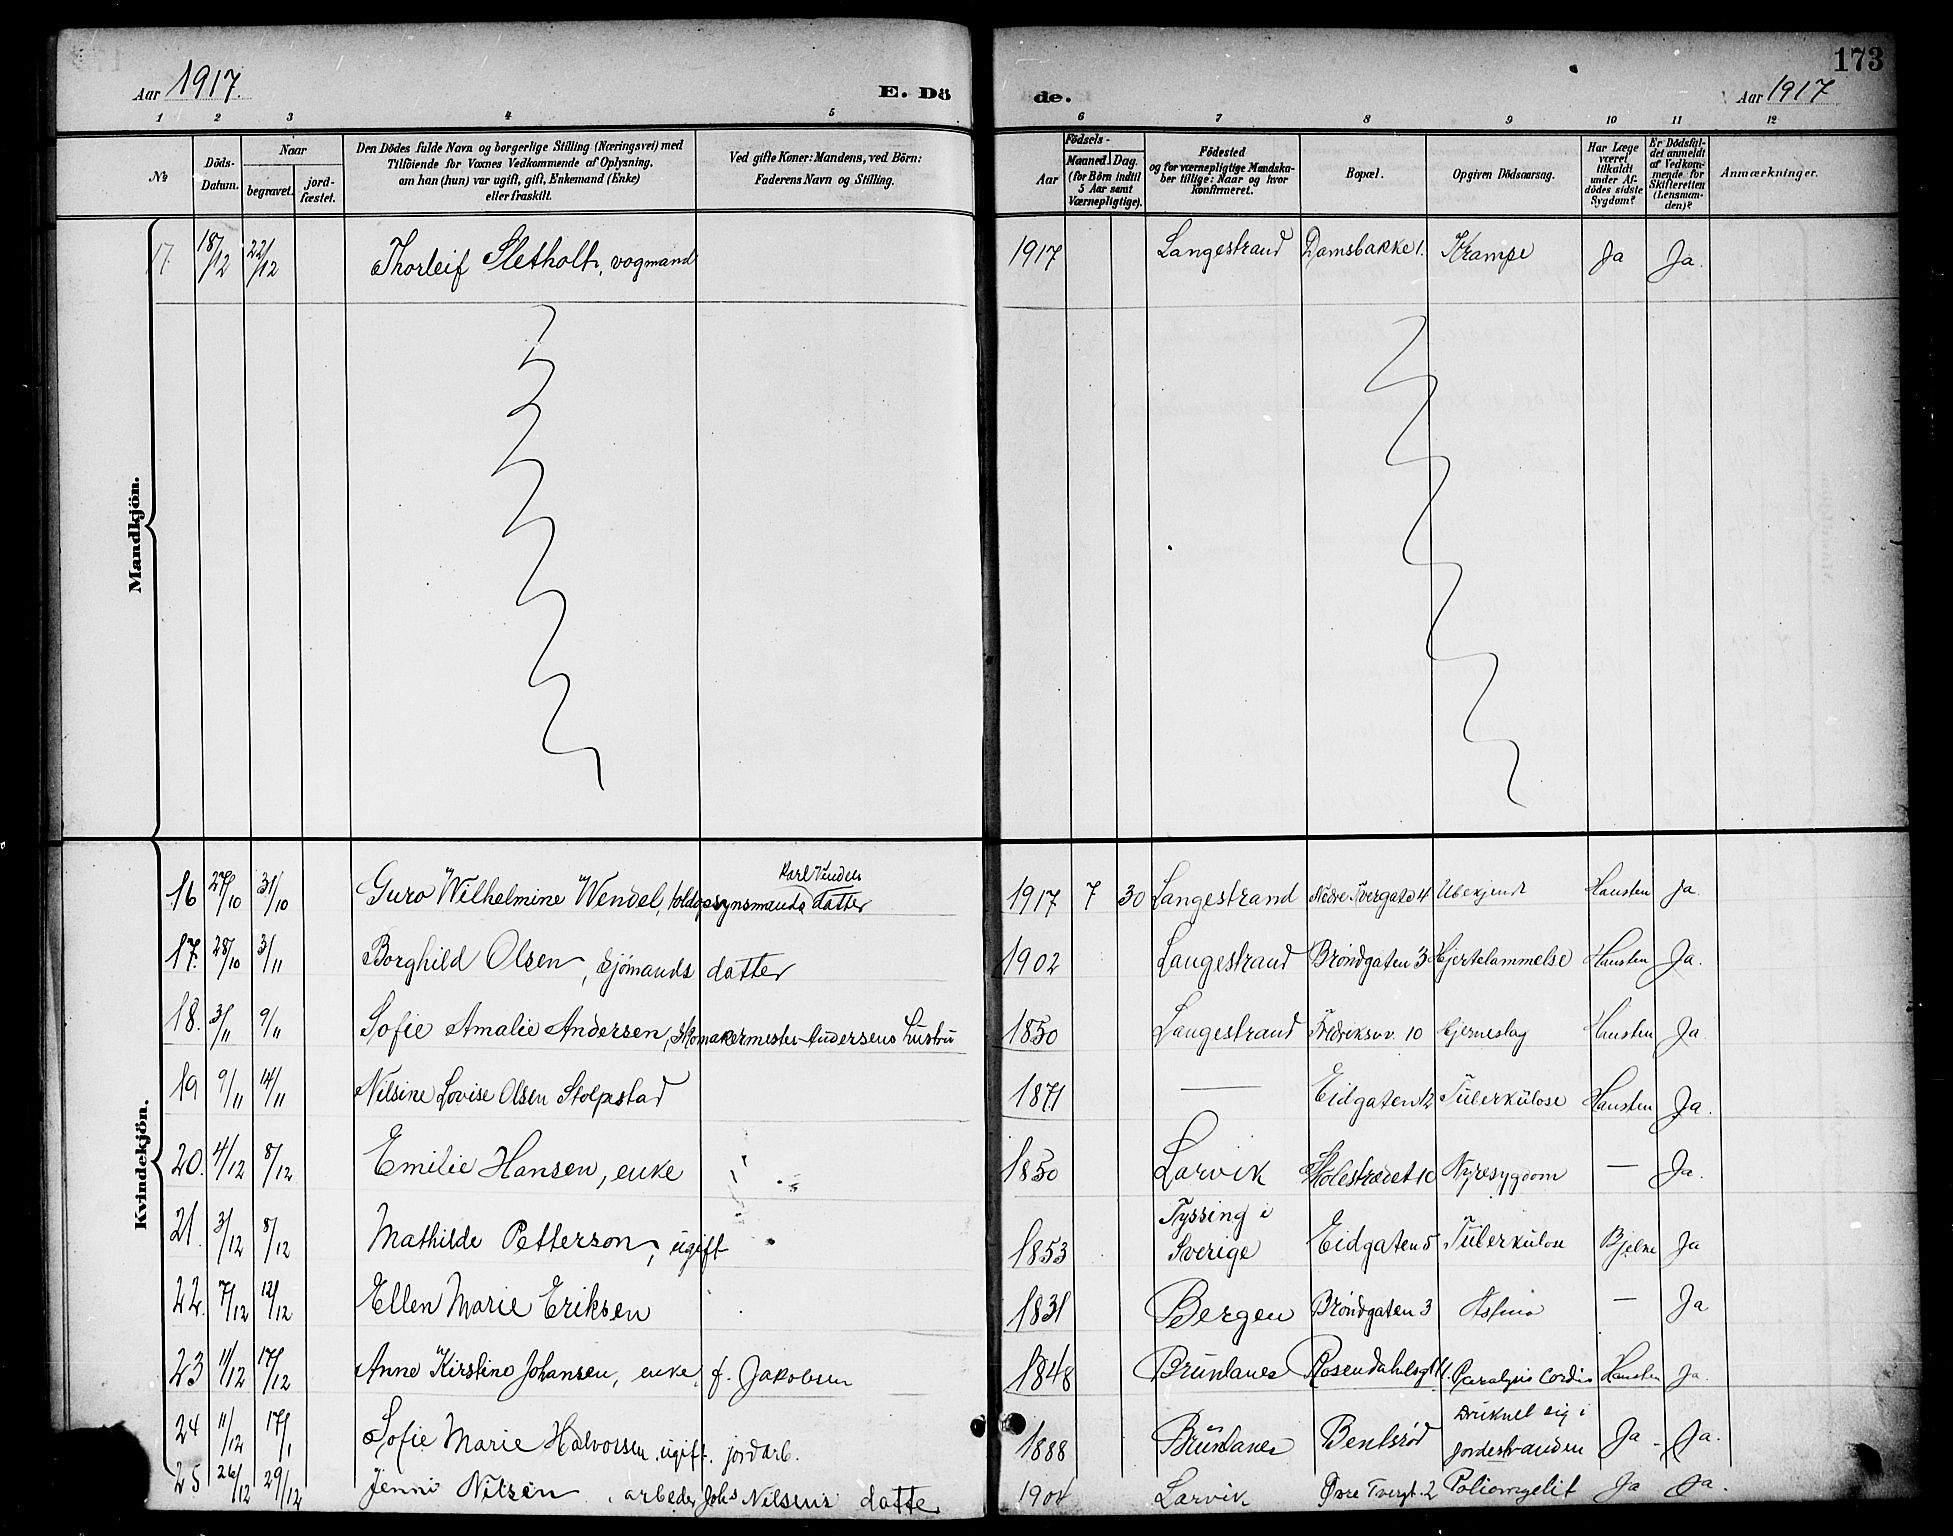 173
Aar 1917. E. Dö de. Aar 1917
1 2 3 4 5 6 7 8 9 10 11 12
№
Döds-Datum.
Naar
begravet.
jord-fæstet.
Den Dödes fulde Navn og borgerlige Stilling (Næringsvei) med
Tilföiende for Voxnes Vedkommende af Oplysning,
om han (hun) var ugift, gift, Enkemand (Enke)
eller fraskilt.
Ved gifte Koner: Mandens, ved Börn:
Faderens Navn og Stilling.
Födsels-
Aar
Maaned. Dag.
(for Börn indtil
5 Aar samt
Værnepligtige).
Födested
og for værnepligtige Mandska-
ber tillige: Naar og hvor
konfirmeret.
Bopæl.
Opgiven Dödsaarsag.
Har Læge
været
tilkaldt
under Af-
dödes sidste
Sygdom?
Er Dödsfal-
det anmeldt
af Vedkom-
mende for
Skifteretten
(Lensman-
den)?
Anmærkninger.
Mandkjön.
17. 18/12 22/12 Thorleif Sletholt, vogmand 1917 Langestrand Damsbakke 1. Krampe Ja Ja.
Kvindekjön.
Karl Wendels
16 27/10 31/10 Guro Wilhelmine Wendel, toldopsynsmands datter 1917 7 30 Langestrand Nedre Tvergate 4 Ubekjendt Hausten Ja.
17. 28/10 3/11 Borghild Olsen, sjömands datter 1902 Langestrand Bröndgaten 3 Hjertelammelse Hausten Ja.
18. 3/11 9/11 Sofie Amalie Andersen, skomakermester Andersens hustru 1850 Langestrand Fredriksv. 10 Hjerneslag Hausten Ja
19 9/11 14/11 Nilsine Lovise Olsen Stolpestad 1871 — Eidgaten 12 Tüberkülose Hausten Ja.
20. 4/12 8/12 Emilie Hansen, enke 1850 Larvik Holestrædet 10 Nyresygdom — Ja.
21. 3/12 8/12 Mathilde Petterson, ugift 1853 Tyssing i Sverige Eidgaten 5 Tüberkülose Bjelke Ja
22. 7/12 12/12 Ellen Marie Eriksen 1831 Bergen Bröndgaten 3 Astma — Ja
23 11/12 17/12 Anne Kirstine Johansen, enke, f. Jakobsen 1848 Brünlanes Rosendahlsgt 11. Paralysis Cordis Hausten Ja.
24 11/12 17/1 Sofie Marie Halvorsen, ugift. jordarb. 1888 Brünlanes Bentsröd Druknet sig i Jordestranden Ja. Ja.
25 26/12 29/12 Jenni Nilsen, arbeder Johs Nilsens datter 1904 Larvik Övre Tvergt. 2 Poliomyelit Ja Ja.